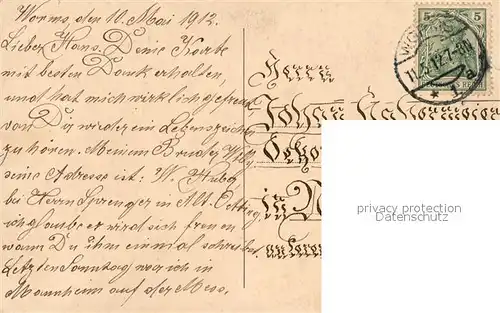 Worms, den 10. Mai 1912.
Lieber Hans. Deine Karte
mit besten Dank erhalten,
und hat mich wirklich gefreut
von Du wieder ein Lebenszeichen
zu hören. Meinem Bruder Willy
seine Adresse ist: W. Huber
bei Herrn Sprenger in Alt-Ötting
ich glaube er wird sich freuen
wann Du ihm einmal schreibst.
Letzten Sonntag war ich in
Mannheim auf der Mess.
Herrn
Johann
in
5 5
WORMS
11.5.12.7-8N.
* a
privacy protection
Datenschutz